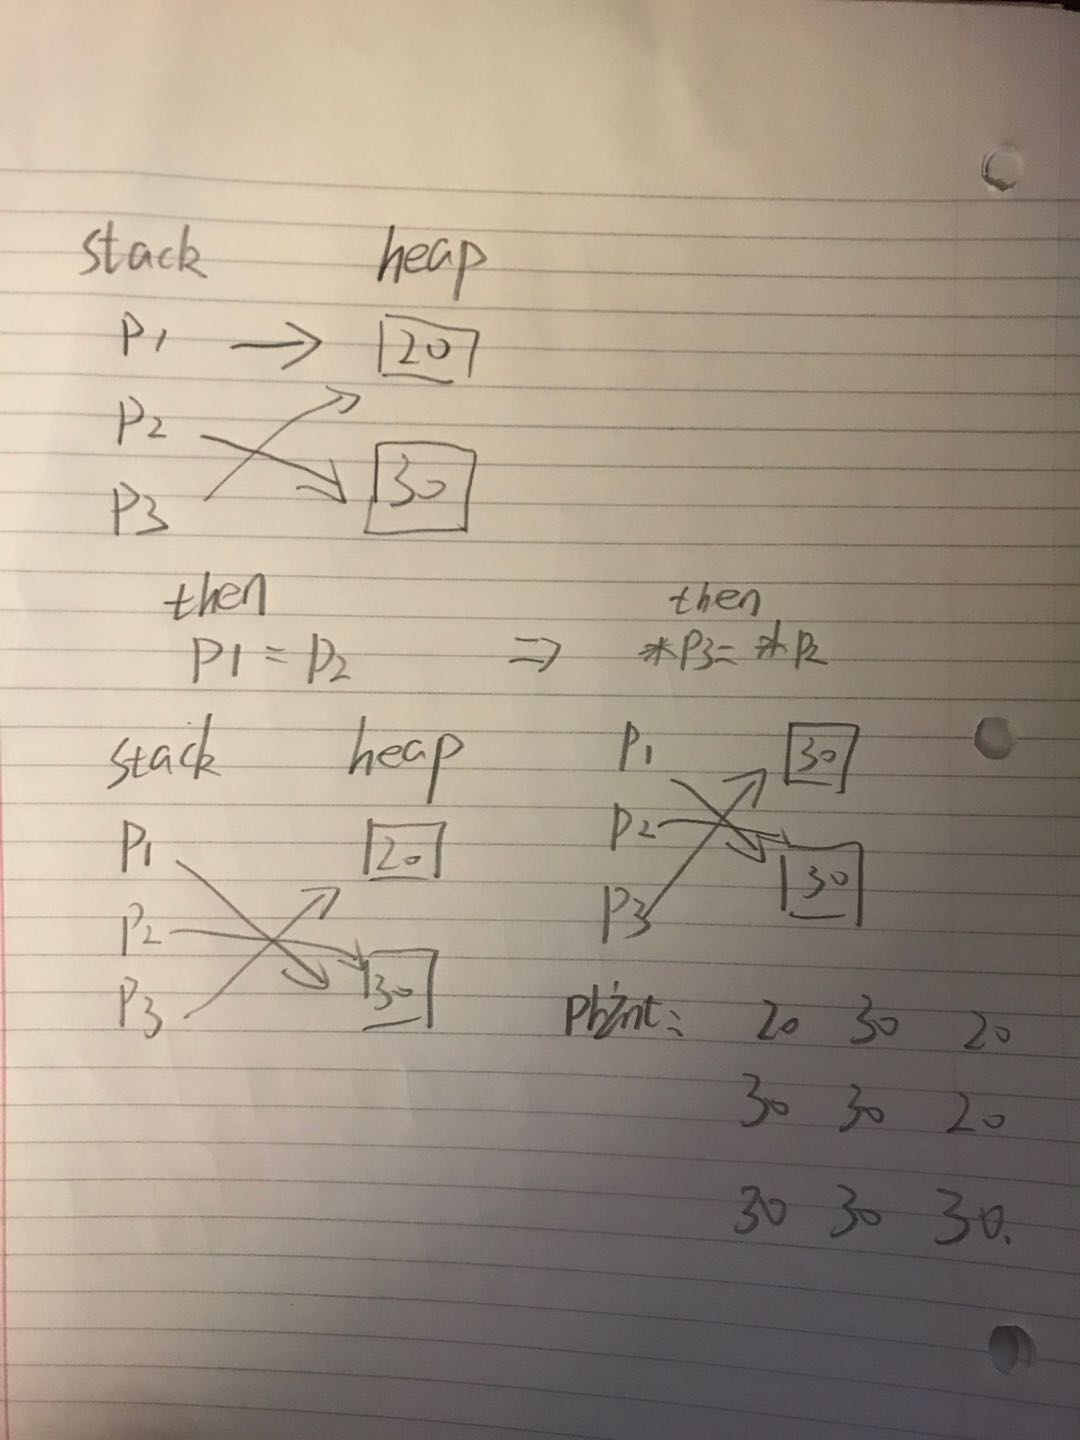 stack heap
P1 → 20
P2
30
P3
then
P1 = P2
⇒
then
*P3= *P2
stack heap
P1 20
P2
P3 30
P1 30
P2
30
P3
Print: 20 30 20
30 30 20
30 30 30.